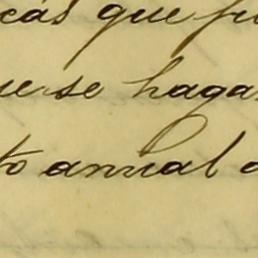 cás que fu
ue se hagan
to annual d